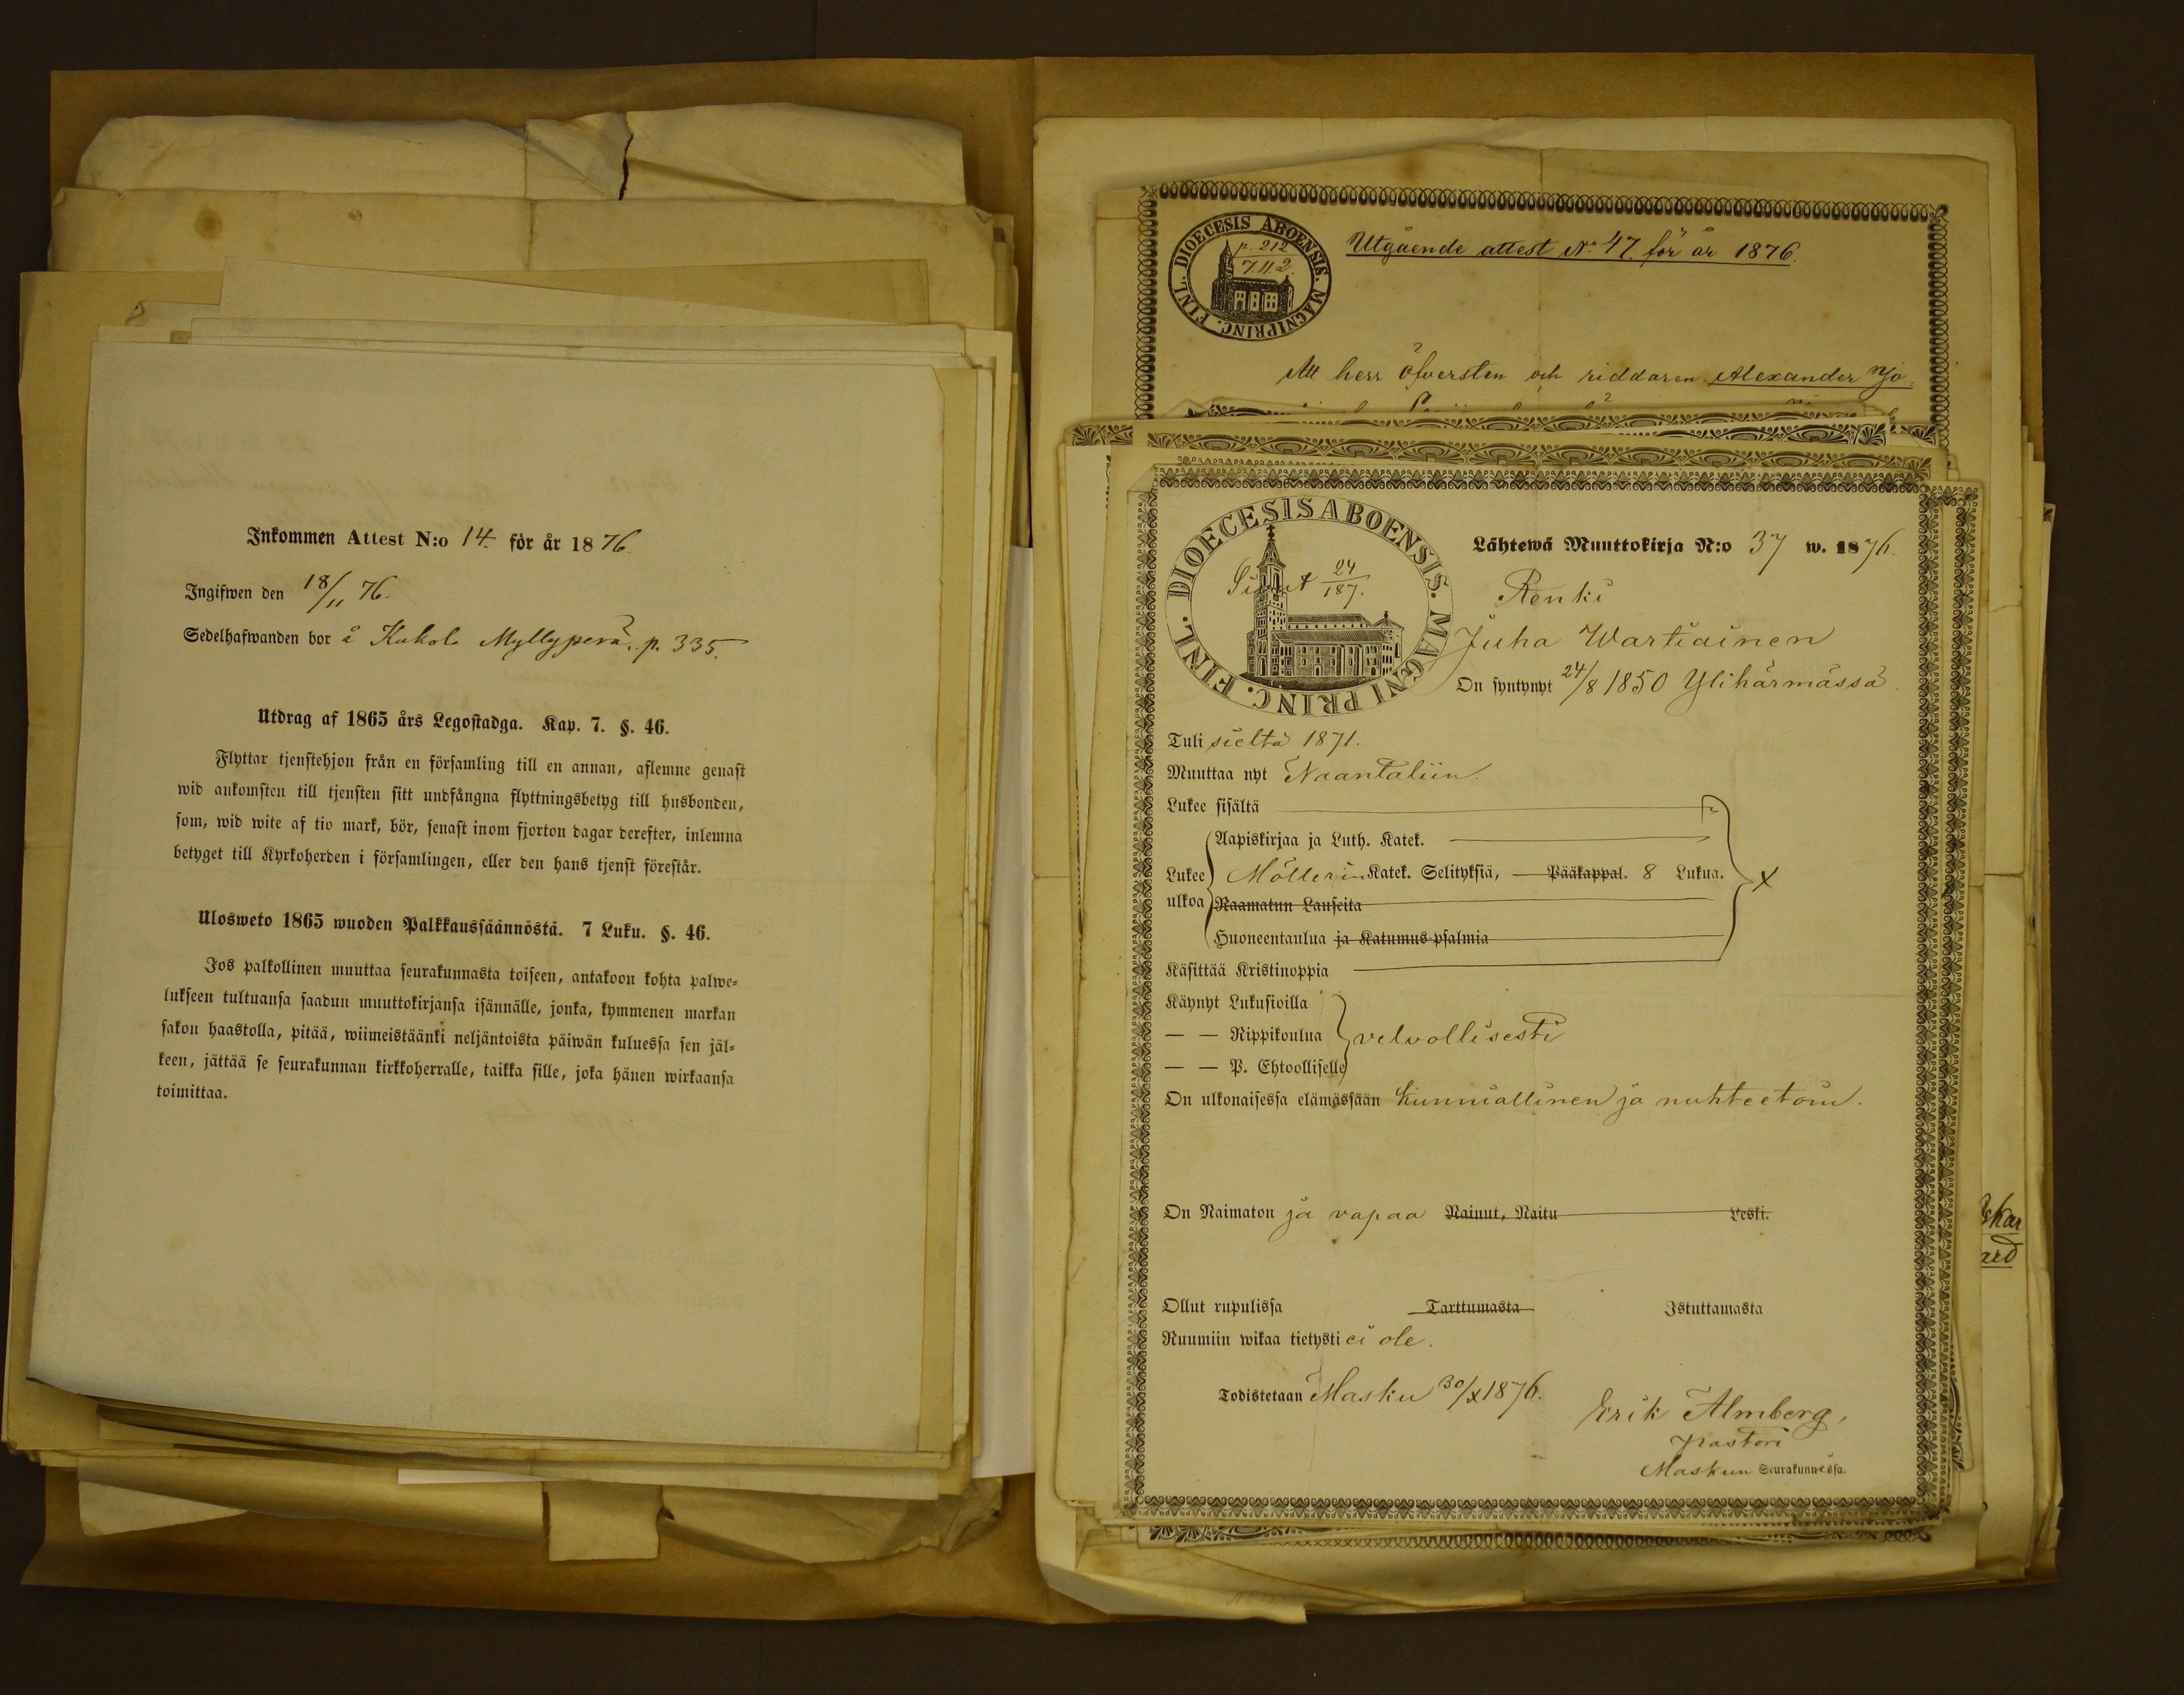 Inkommen Attest N:o 14. för år 1876.
Ingifwen den 18/11 76.
Sedelhafwanden bor å Kukola Myllyperä. p. 335.
Utdrag af 1865 års Legostadga. Kap. 7. §. 46.
Flyttar tjenstehjon från en församling till en annan, aflemne genast
wid ankomsten till tjensten sitt undfångna flyttningsbetyg till husbonden,
som, wid wite af tio mark, bör, senast inom fjorton dagar derefter, inlemna
betyget till Kyrkoherden i församlingen, eller den hans tjenst förestår.
Ulosweto 1865 wuoden Palkkaussäännöstä. 7 Luku. §. 46.
Jos palkollinen muuttaa seurakunnasta toiseen, antakoon kohta palwe=
lukseen tultuansa saadun muuttokirjansa isännälle, jonka, kymmenen markan
sakon haastolla, pitää, wiimeistäänki neljäntoista päiwän kuluessa sen jäl=
keen, jättää se seurakunnan kirkkoherralle, taikka sille, joka hänen wirkaansa
toimittaa.
DIOECESIS ABOENSIS. MAGNI PRINC. FINL.
p. 212
7.11.2.
Utgående attest No 47. för år 1876.
Att herr öfversten och riddaren Alexander
DIOECESIS ABOENSIS. MAGNI PRINC. FINL.
24
187.
Lähtewä Muuttokirja N:o 37 w. 1876.
Renki
Juha Wartiainen
On syntynyt 24/8 1850 Ylihärmässä.
Tuli sieltä 1871.
Muuttaa nyt Naantaliin.
Lukee sisältä
Aapiskirjaa ja Luth. Katek.
Lukee Möllerin Katek. Selityksiä, Pääkappal. 8 Lukua. X
ulkoa Raamatun Lauseita
Huoneentaulua ja Katumus-psalmia
Käsittää Kristinoppia
Käynyt Lukusioilla
— — Rippikoulua velvollisesti
— — P. Ehtoolliselle
On ulkonaisessa elämässään kunniallinen ja nuhteetoin.
On Naimaton ja vapaa Nainut, Naitu Leski.
Ollut rupulissa Tarttumasta Istuttamasta
Ruumiin wikaa tietysti ei ole.
Todistetaan Masku 30/X 1876.
Erik Almberg,
Pastori
Maskun Seurakunnassa.